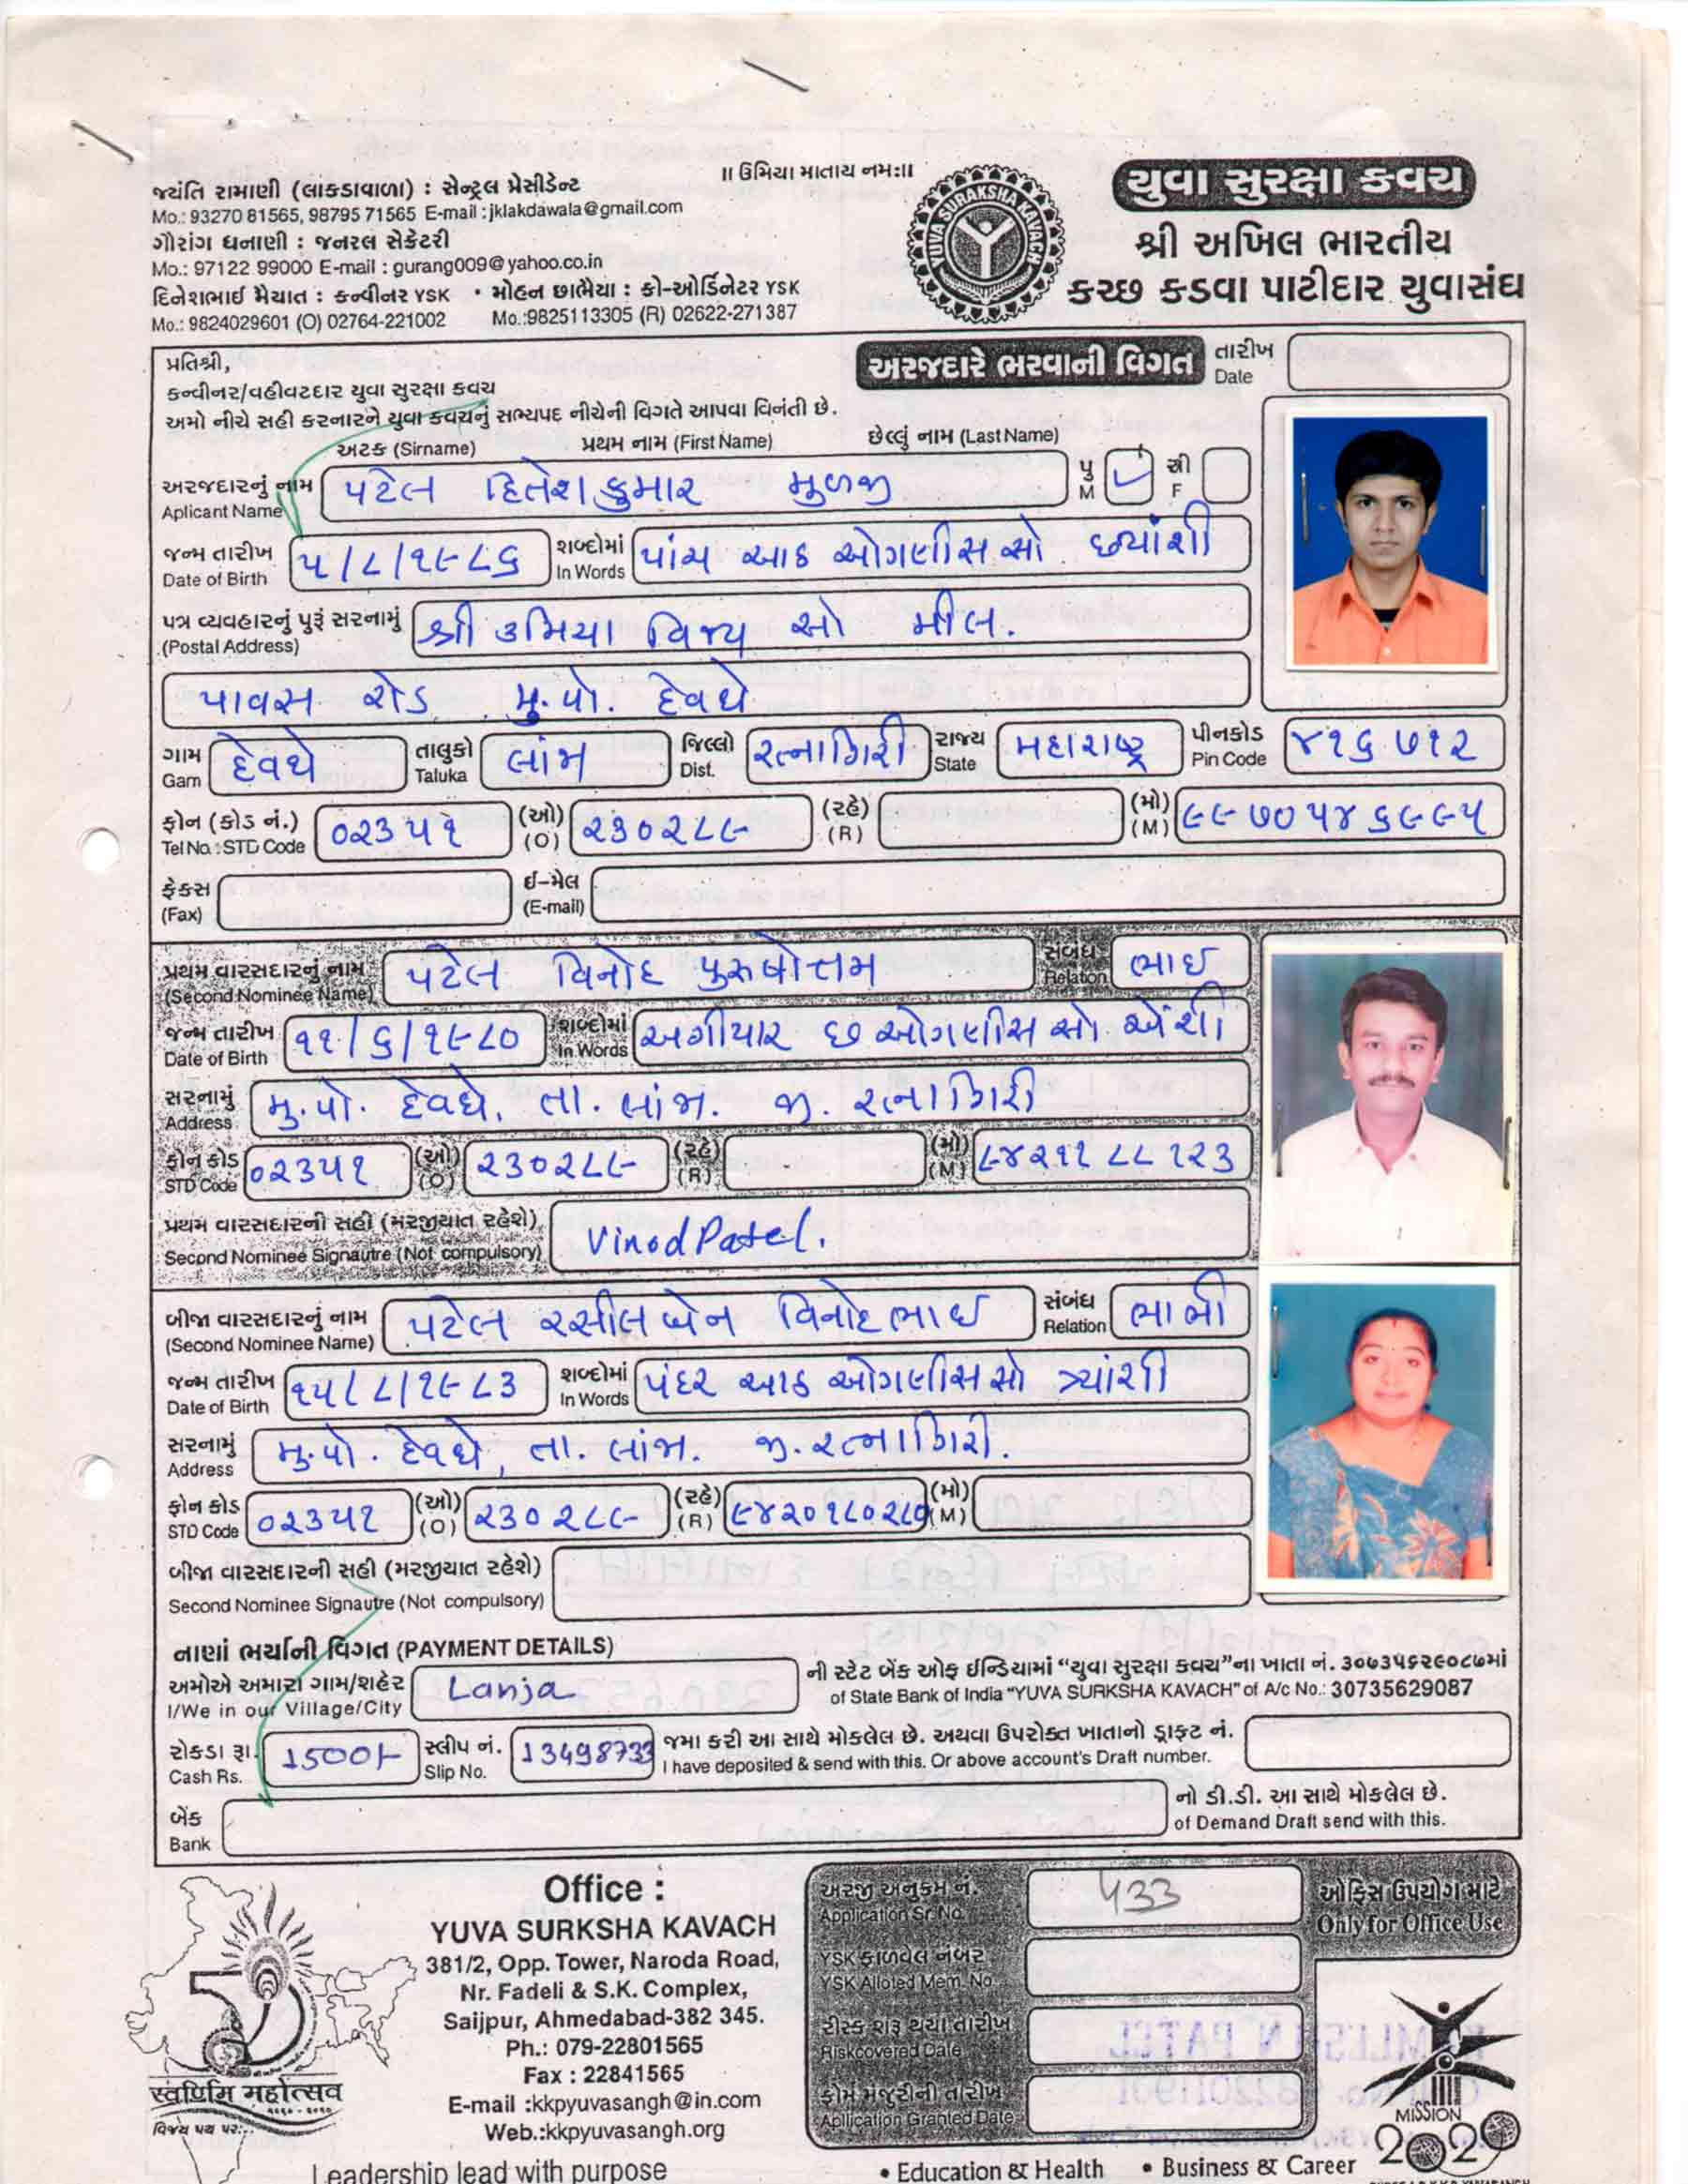 ॥ ઉમિયા માતાય નમઃ॥
જયંતિ રામાણી (લાકડાવાળા) : સેન્ટ્રલ પ્રેસીડેન્ટ
Mo.: 93270 81565, 98795 71565 E-mail : jklakdawala@gmail.com
ગૌરાંગ ધનાણી : જનરલ સેક્રેટરી
Mo.: 97122 99000 E-mail : gurang009@yahoo.co.in
દિનેશભાઈ મૈયાત : કન્વીનર YSK • મોહન છાભૈયા : કો-ઓર્ડિનેટર YSK
Mo.: 9824029601 (O) 02764-221002 Mo.:9825113305 (R) 02622-271387
YUVA SURAKSHA KAVACH
યુવા સુરક્ષા કવચ
શ્રી અખિલ ભારતીય
કચ્છ કડવા પાટીદાર યુવાસંઘ
પ્રતિશ્રી,
અરજદારે ભરવાની વિગત
તારીખ Date
કન્વીનર/વહીવટદાર યુવા સુરક્ષા કવચ
અમો નીચે સહી કરનારને યુવા કવચનું સભ્યપદ નીચેની વિગતે આપવા વિનંતી છે.
અટક (Sirname) પ્રથમ નામ (First Name) છેલ્લું નામ (Last Name)
અરજદારનું નામ Aplicant Name પટેલ હિતેશકુમાર મુળજી પુ M સ્ત્રી F
જન્મ તારીખ Date of Birth ૫/૮/૧૯૮૬ શબ્દોમાં In Words પાંચ આઠ ઓગણીસ સો છ્યાંશી
પત્ર વ્યવહારનું પુરૂં સરનામું (Postal Address) શ્રી ઉમિયા વિજય સો મીલ.
પાવસ રોડ મુ.પો. દેવધે
ગામ Gam દેવધે તાલુકો Taluka લાંજા જિલ્લો Dist. રત્નાગિરી રાજ્ય State મહારાષ્ટ્ર પીનકોડ Pin Code ૪૧૬ ૭૧૨
ફોન (કોડ નં.) Tel No.: STD Code ૦૨૩૫૧ (ઓ) (O) ૨૩૦૨૮૯ (રહે) (R) (મો) (M) ૯૯૭૦૫૪૬૯૯૫
ફેકસ (Fax) ઈ-મેલ (E-mail)
પ્રથમ વારસદારનું નામ (Second Nominee Name) પટેલ વિનોદ પુરુષોત્તમ સંબંધ Relation ભાઈ
જન્મ તારીખ Date of Birth ૧૧/૬/૧૯૮૦ શબ્દોમાં In Words અગીયાર છ ઓગણીસ સો એંશી
સરનામું Address મુ.પો. દેવધે, તા. લાંજા. જી. રત્નાગિરી
ફોન કોડ STD Code ૦૨૩૫૧ (ઓ) (O) ૨૩૦૨૮૯ (રહે) (R) (મો) (M) ૯૪૨૧૧ ૮૮ ૧૨૩
પ્રથમ વારસદારની સહી (મરજીયાત રહેશે) Second Nominee Signautre (Not compulsory) Vinod Patel.
બીજા વારસદારનું નામ (Second Nominee Name) પટેલ રસીલાબેન વિનોદભાઈ સંબંધ Relation ભાભી
જન્મ તારીખ Date of Birth ૧૫/૮/૧૯૮૩ શબ્દોમાં In Words પંદર આઠ ઓગણીસ સો ત્ર્યાંશી
સરનામું Address મુ.પો. દેવધે, તા. લાંજા. જી. રત્નાગિરી.
ફોન કોડ STD Code ૦૨૩૫૧ (ઓ) (O) ૨૩૦૨૮૯ (રહે) (R) (મો) (M)
બીજા વારસદારની સહી (મરજીયાત રહેશે) Second Nominee Signautre (Not compulsory)
નાણાં ભર્યાની વિગત (PAYMENT DETAILS)
અમોએ અમારા ગામ/શહેર I/We in our Village/City Lanja ની સ્ટેટ બેંક ઓફ ઈન્ડિયામાં “યુવા સુરક્ષા કવચ”ના ખાતા નં. ૩૦૭૩૫૬૨૯૦૮૭માં
of State Bank of India “YUVA SURKSHA KAVACH” of A/c No.: 30735629087
રોકડા રૂા. Cash Rs. 1500/- સ્લીપ નં. Slip No. 13498733 જમા કરી આ સાથે મોકલેલ છે. અથવા ઉપરોક્ત ખાતાનો ડ્રાફ્ટ નં.
I have deposited & send with this. Or above account's Draft number.
બેંક Bank નો ડી.ડી. આ સાથે મોકલેલ છે.
of Demand Draft send with this.
Office :
YUVA SURKSHA KAVACH
381/2, Opp. Tower, Naroda Road,
Nr. Fadeli & S.K. Complex,
Saijpur, Ahmedabad-382 345.
Ph.: 079-22801565
Fax : 22841565
E-mail :kkpyuvasangh@in.com
Web.:kkpyuvasangh.org
અરજી અનુક્રમ નં. Application Sr. No. 433
YSK ફાળવેલ નંબર YSK Alloted Mem. No.
રીસ્ક શરૂ થયા તારીખ Riskcovered Date
ફોર્મ મંજુરીની તારીખ Apllication Granted Date
ઓફિસ ઉપયોગ માટે
Only for Office Use
स्वर्णिम महोत्सव
વિજય પથ પર...
MISSION
2020
Leadership lead with purpose
• Education & Health • Business & Career